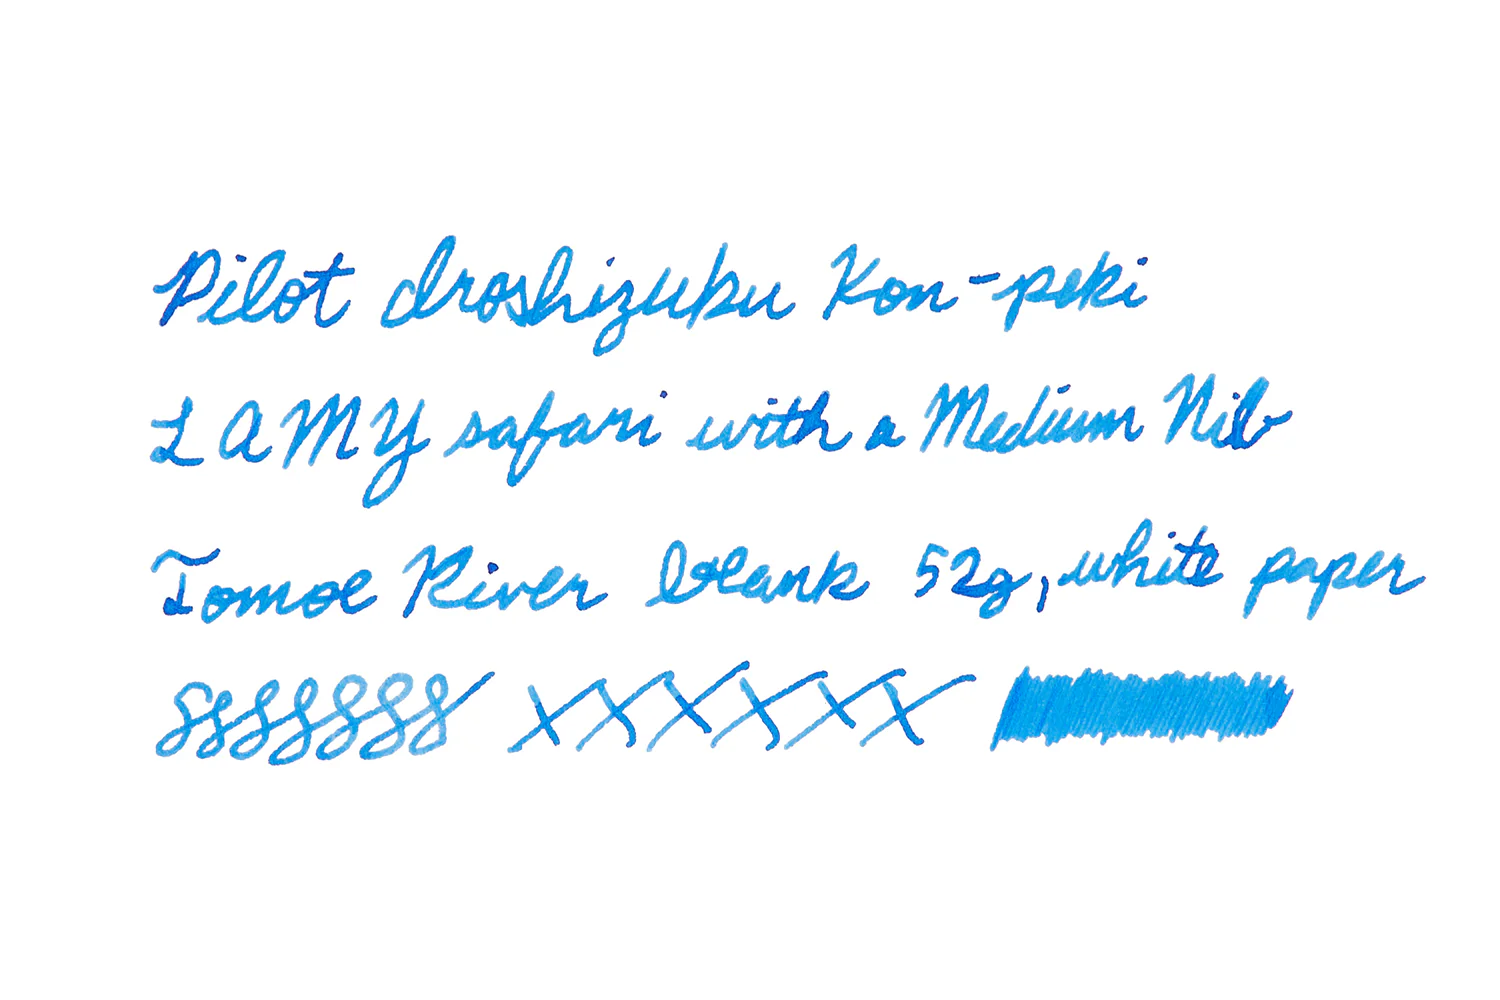 Pilot Iroshizuku Kon-peki
LAMY safari with a Medium Nib
Tomoe River blank 52g, white paper